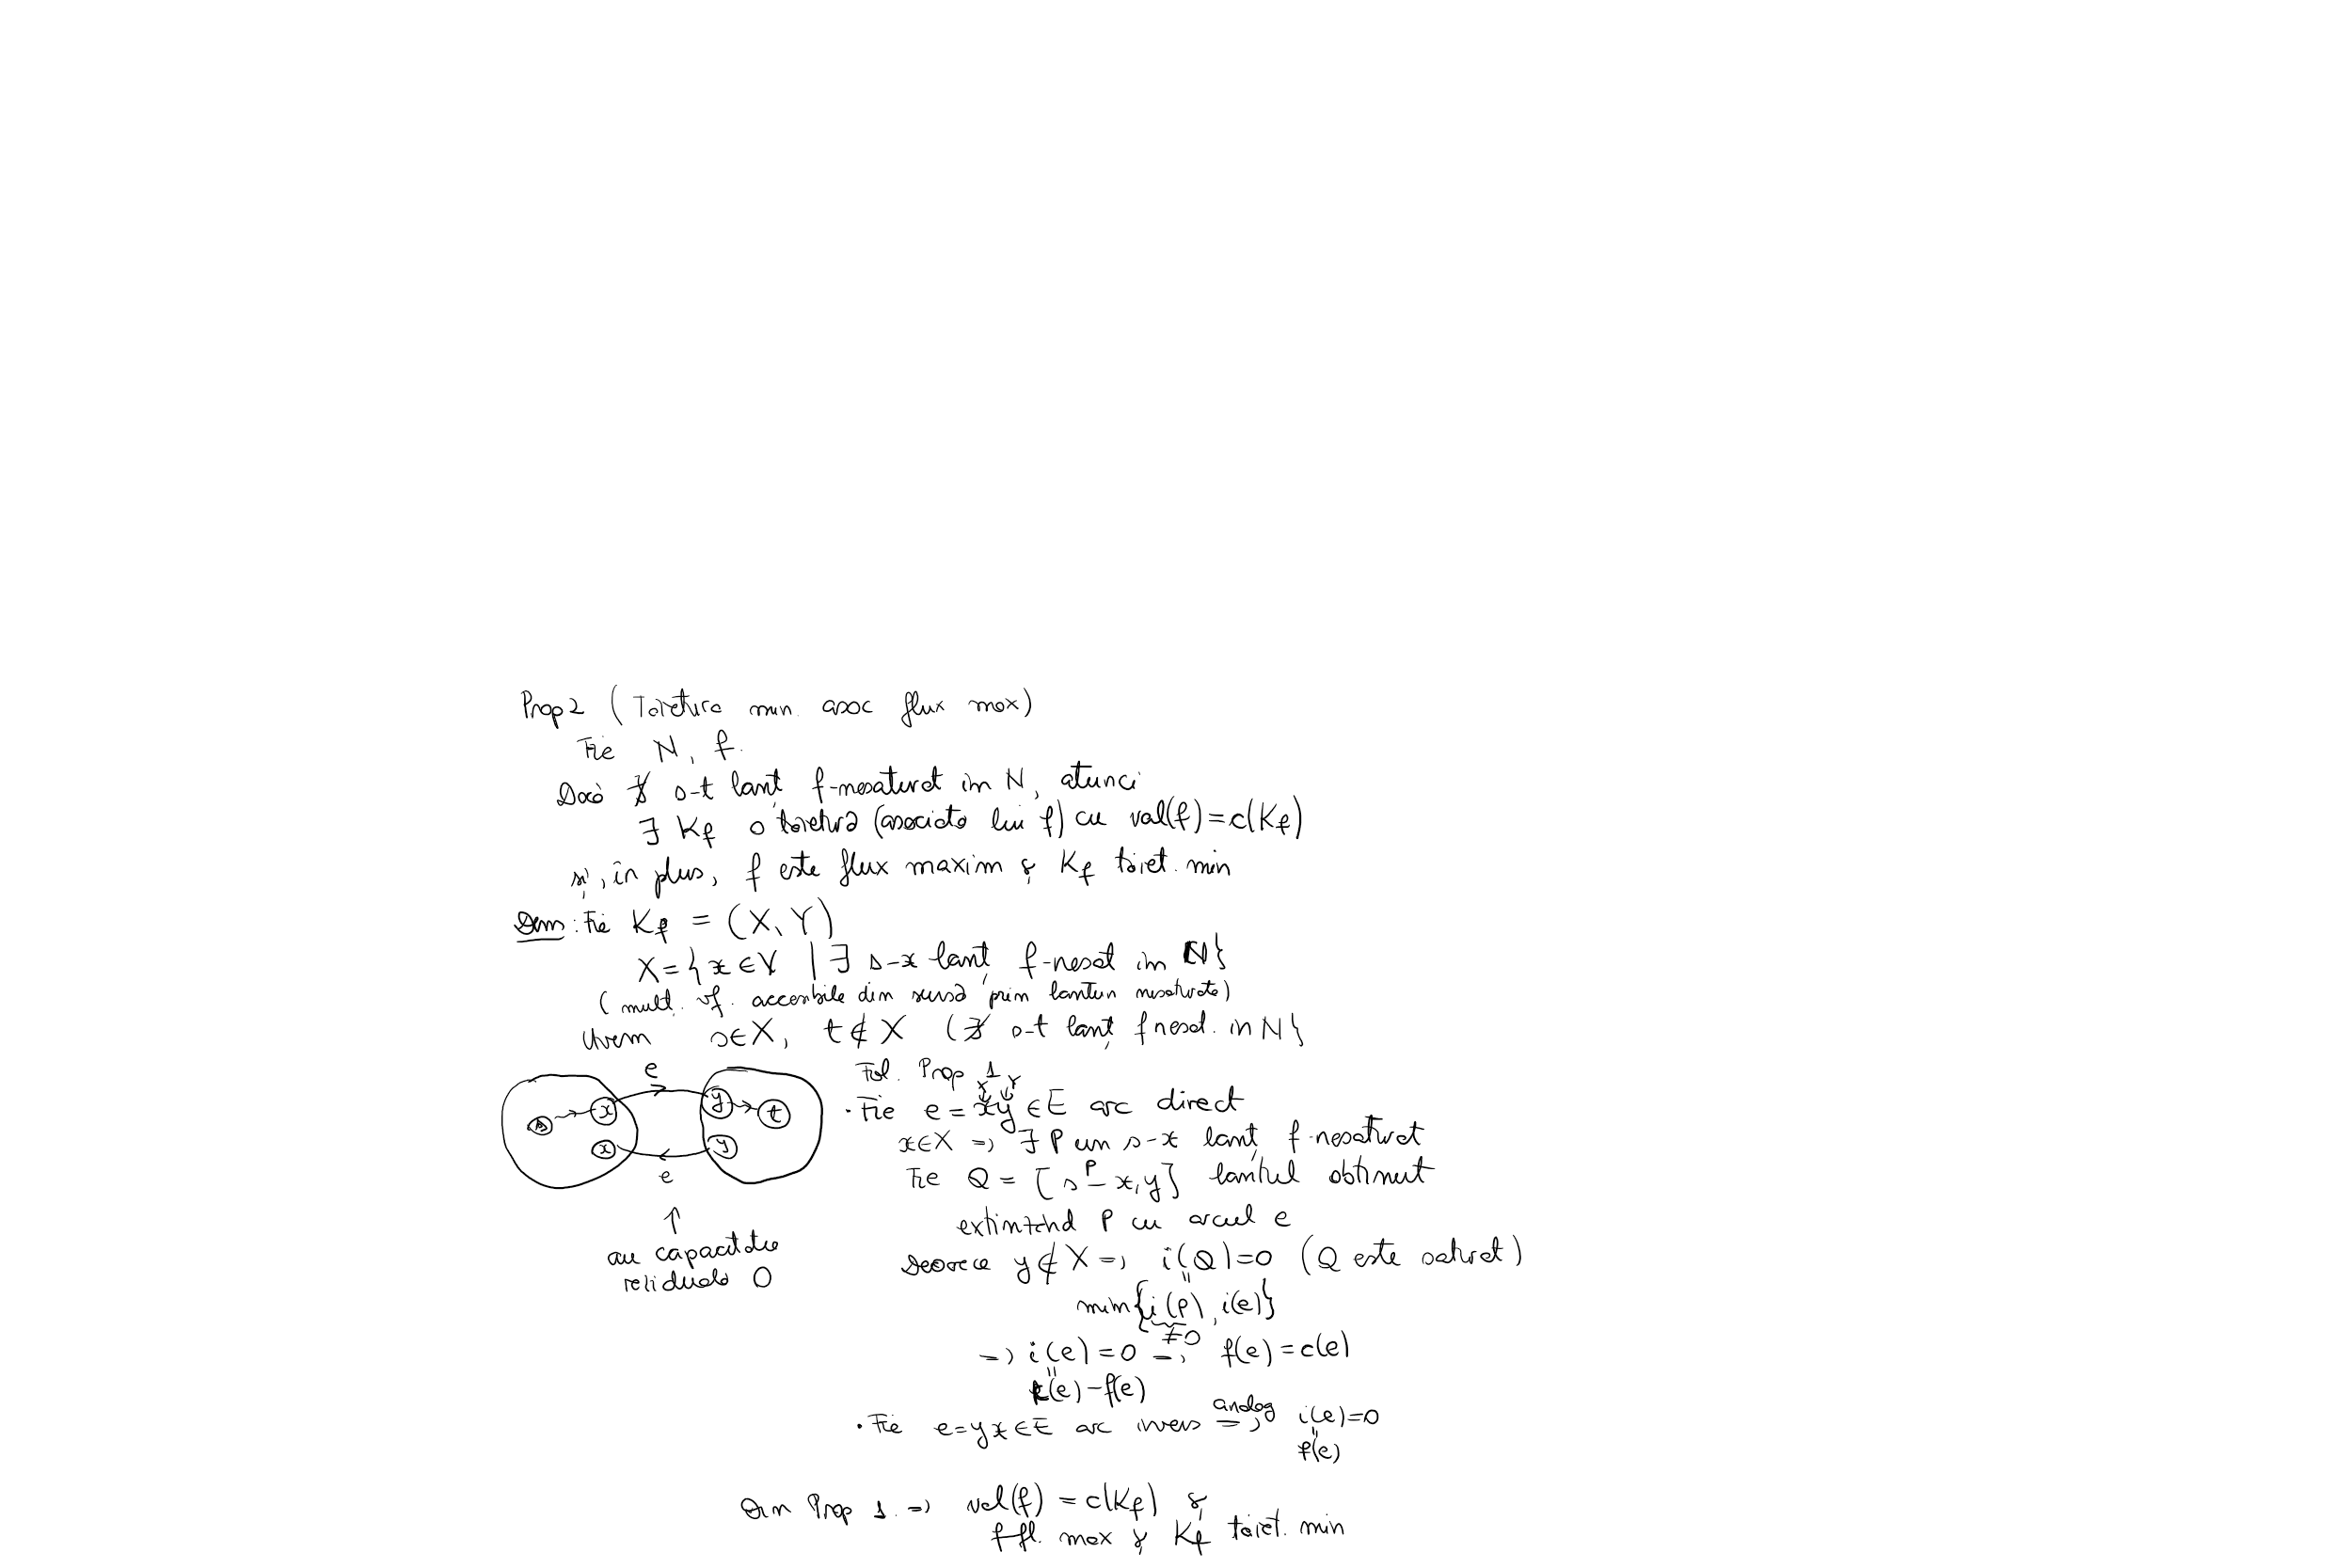 Prop 2 (Tăietura min. asoc flux max)
Fie N, f.
Dacă ∄ s-t lanț f-nesaturat în N, atunci
∃ K_f o tăietură (asociată lui f) cu val(f) = c(K_f)
și, în plus, f este flux maxim și K_f tăiet. min
Dem: Fie K_f = (X, Y)
X = { x ∈ V | ∃ s-x lanț f-nesat în N}
(mult. vf. accesibile din sursă prin lanțuri nesaturate)
Avem s ∈ X, t ∉ X (∄ s-t lanț f nesat. în N}
Fol. Prop 1
X Y
e
s x y t
x y
e
↑
au capacitate
reziduală 0
· Fie e = xy ∈ E arc direct
x ∈ X => ∃ P un s-x lanț f-nesaturat
Fie Q = [s -P- x, y] lanțul obținut
extinzând P cu arcul e
Deoarece y ∉ X => i(Q) = 0 (Q este saturat)
min{i(P), i(e)}
≠0
=> i(e) = 0 => f(e) = c(e)
c(e) - f(e)
· Fie e = yx ∈ E arc invers analog => i(e) = 0
f(e)
Din Prop 1. => val(f) = c(K_f) și
f fl. max și K_f tăiet. min